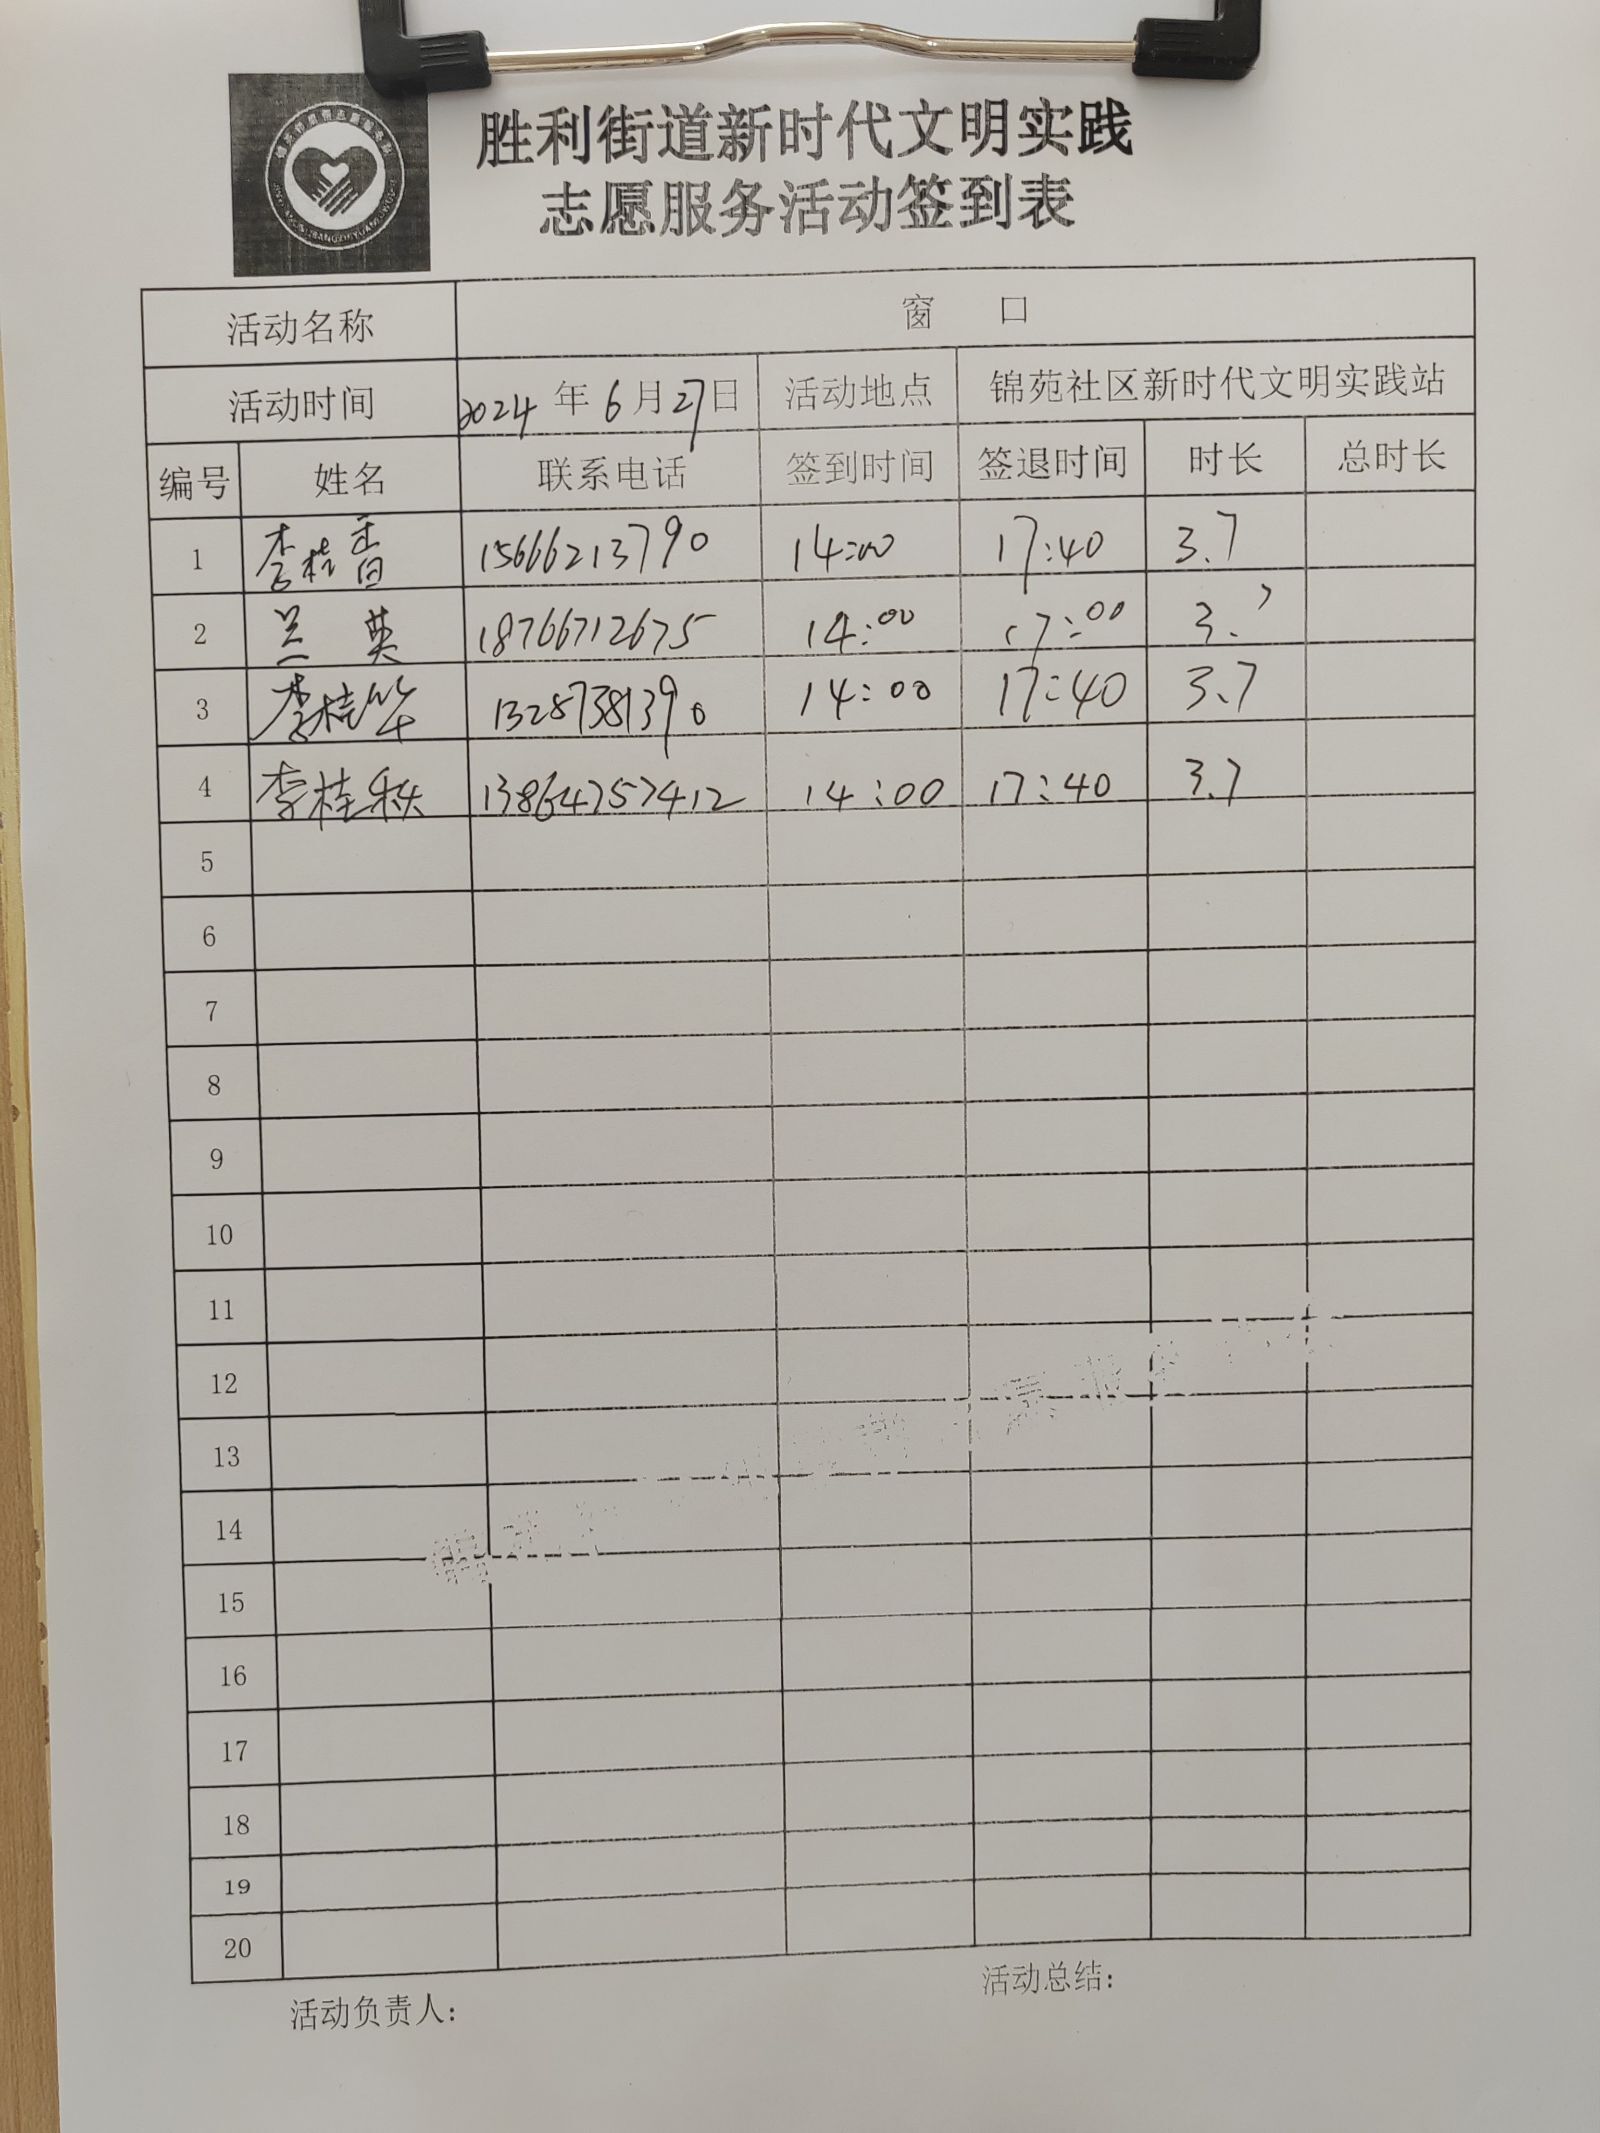 胜利街道新时代文明实践
志愿服务活动签到表
活动名称 窗 口
活动时间 2024 年 6 月 27 日 活动地点 锦苑社区新时代文明实践站
编号 姓名 联系电话 签到时间 签退时间 时长 总时长
1 李桂香 15666213790 14:00 17:40 3.7
2 兰英 18766712675 14:00 17:00 3.7
3 李桂华 13287381390 14:00 17:40 3.7
4 李桂秋 13864757412 14:00 17:40 3.7
5
6
7
8
9
10
11
12
13
14
15
16
17
18
19
20
活动负责人: 活动总结: